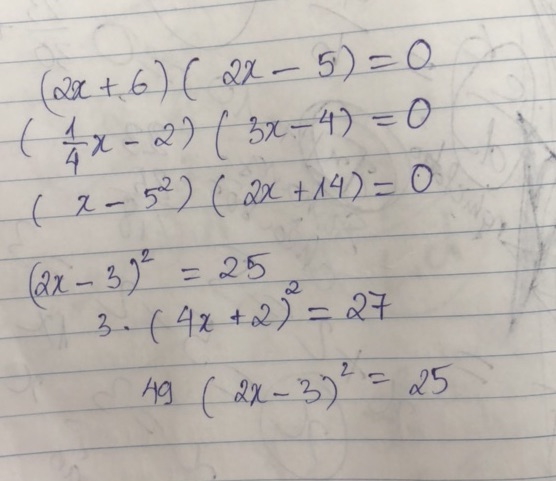 (2x + 6) ( 2x - 5) = 0
( 1/4 x - 2) ( 3x - 4) = 0
( x - 5²) ( 2x + 14) = 0
(2x - 3)² = 25
3 · ( 4x + 2)² = 27
49 ( 2x - 3)² = 25